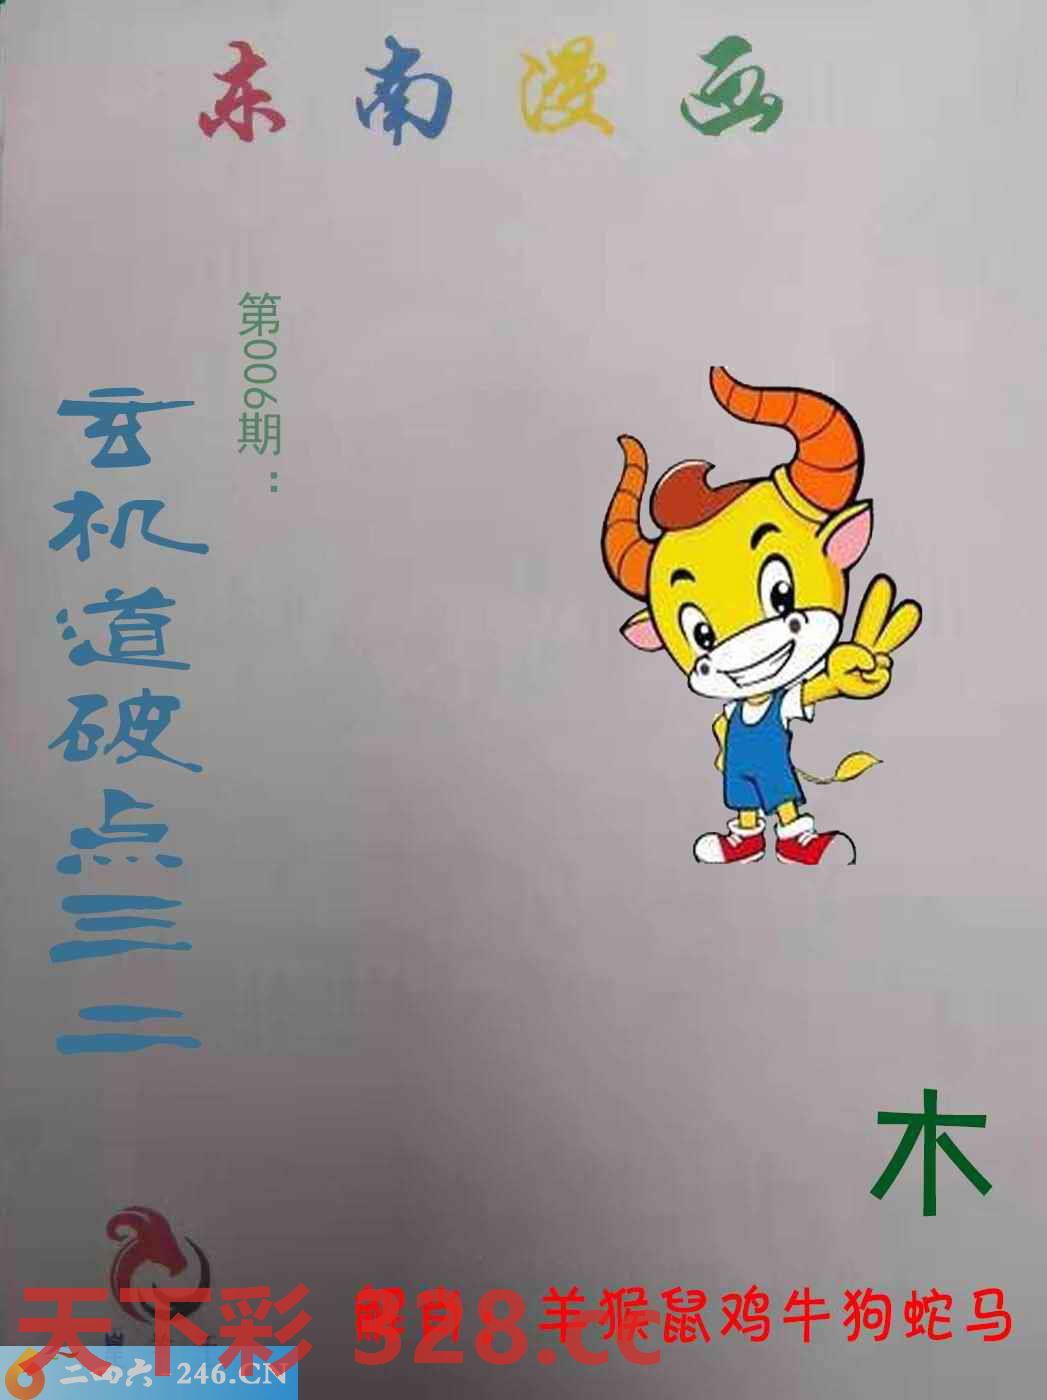 东南漫画
第006期：
玄机道破点三二
木
解肖：羊猴鼠鸡牛狗蛇马
天下彩 328.cc
二四六 246.CN